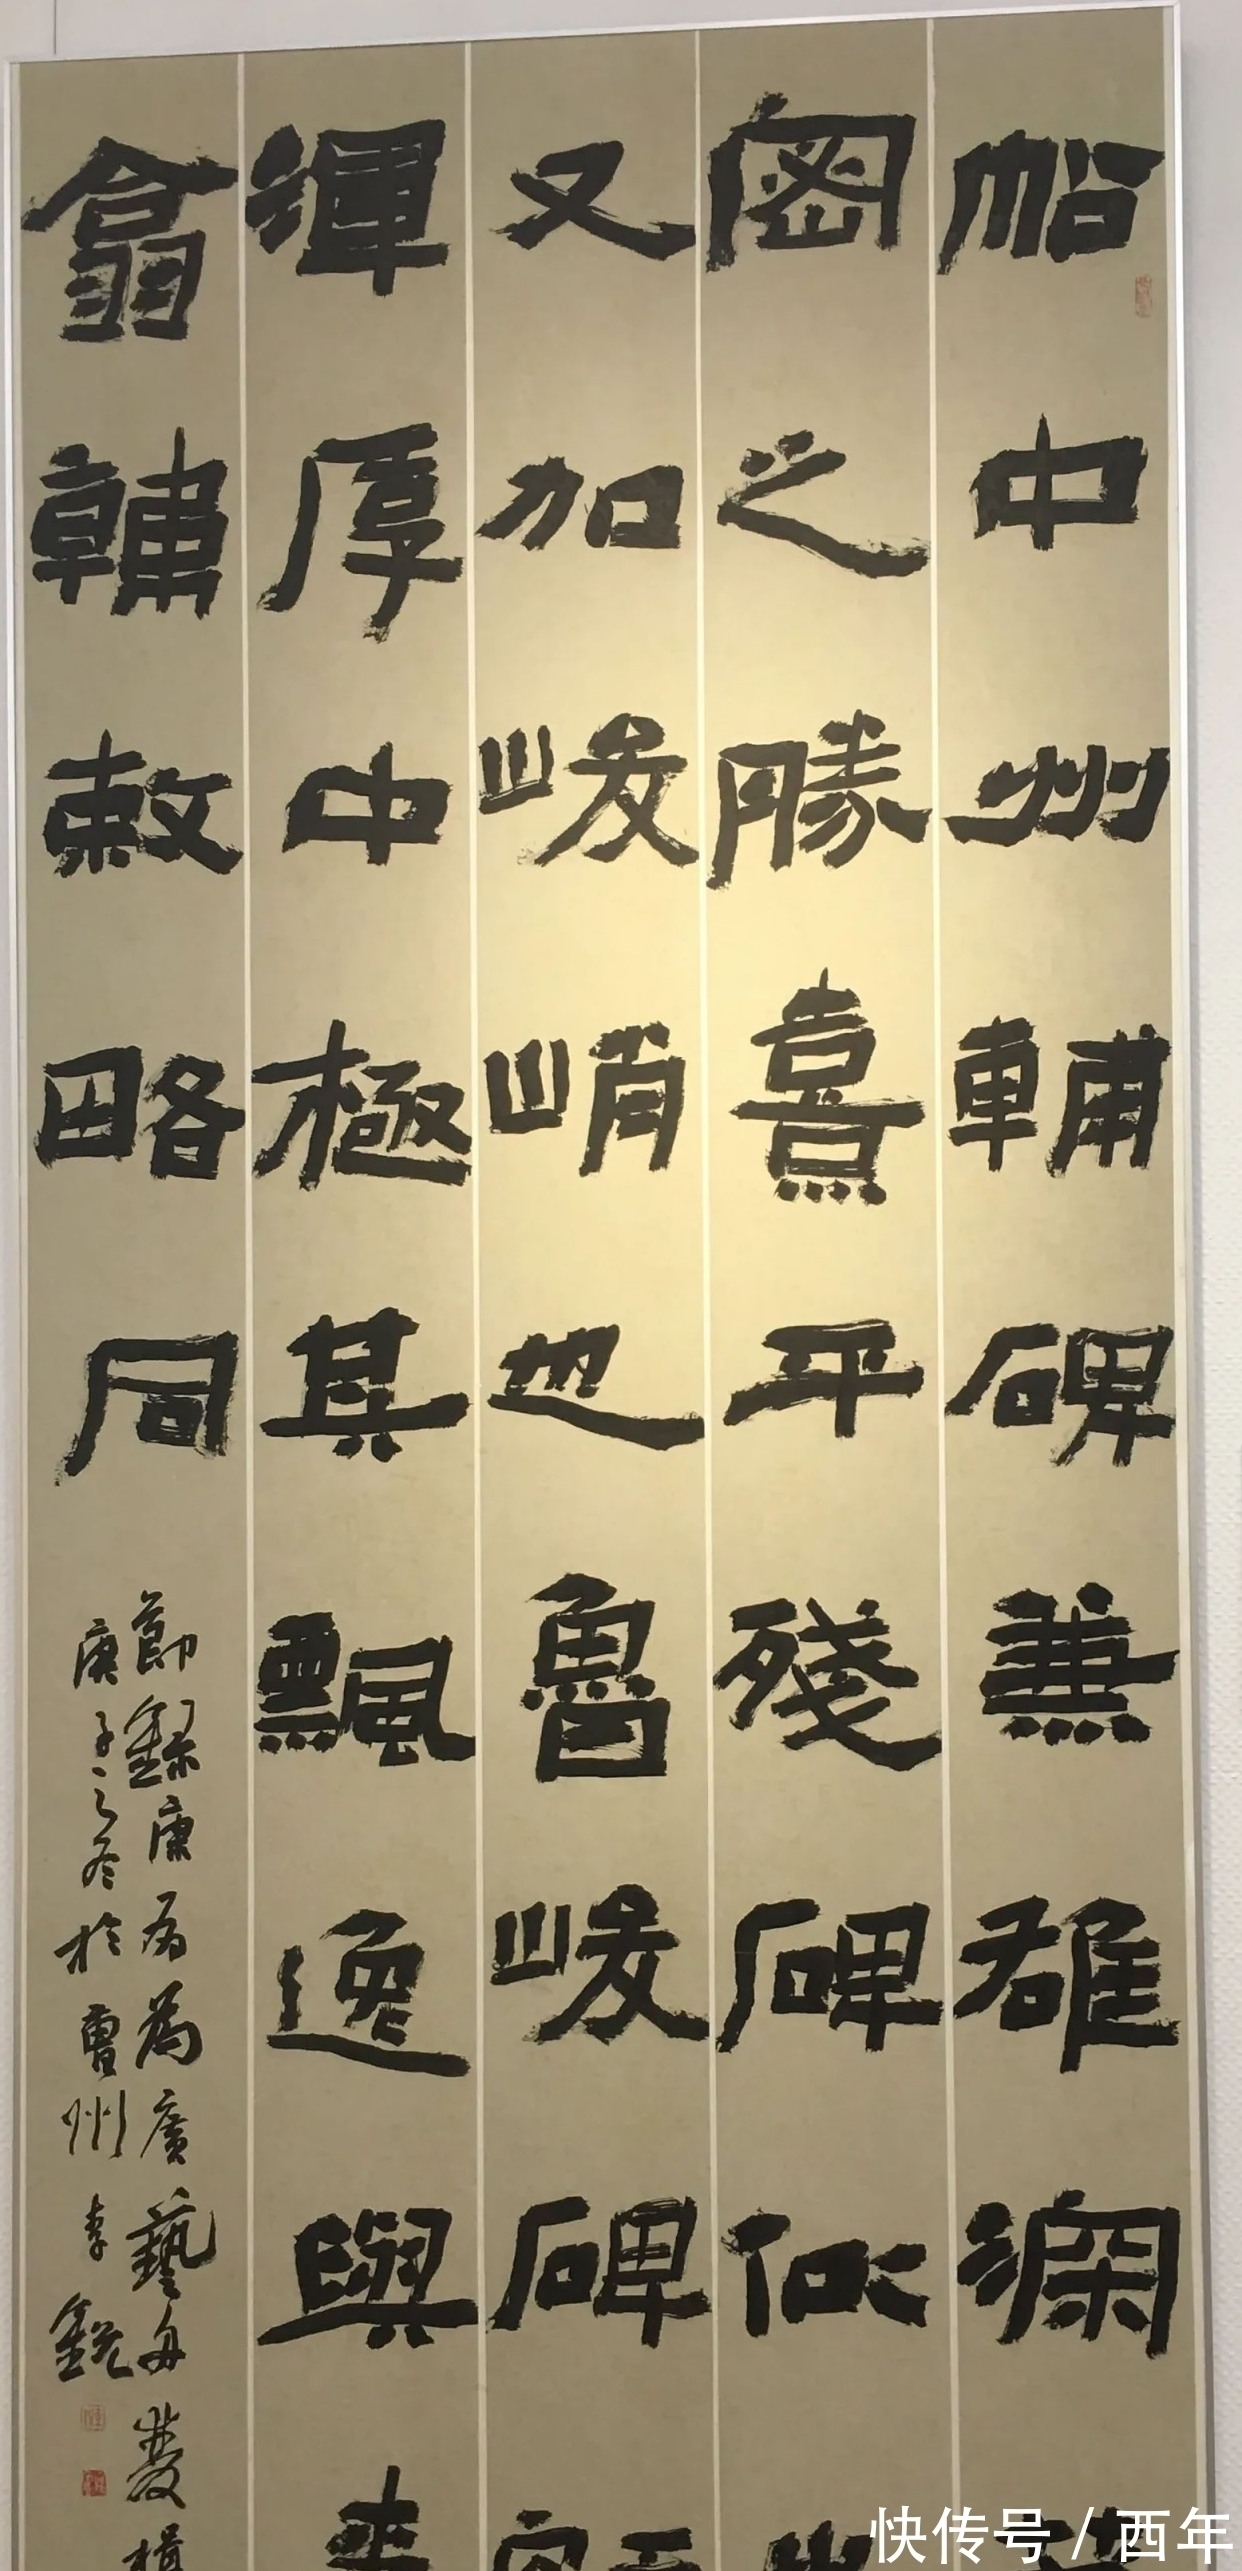 帖中州輔碑兼雄深
密之勝熹平殘碑似
又加峻峭也魯峻碑
渾厚中極其飄逸與
翕輔敕略同
節錄康有為廣藝舟雙楫
庚子之冬於曹州李銳
快传号 / 西年